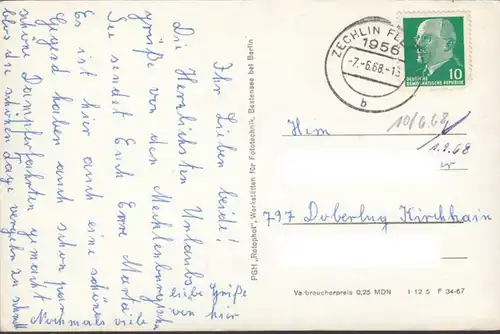 Ihr Lieben beide!
Die Herzlichsten Urlaubs-
grüße von den Mecklenburgische
See sendet Euch Erre Marta
Es ist hier auch eine schöne
Gegend haben auch schon paar
schöne Dampferfahrten gemacht
blos die schöne Tage vergehn zu schnell
Nochmals viele
liebe Grüße
von hier
PGH „Rotophot", Werkstätten für Fototechnik, Bestensee bei Berlin
ZECHLIN FL
1956
-7.-6.68.-1
b
DEUTSCHE
DEMOKRATISCHE REPUBLIK
10
10/6.68
1.9.68
797 Doberlug Kirchhain
Verbraucherpreis 0,25 MDN I 12 5 F 34-67